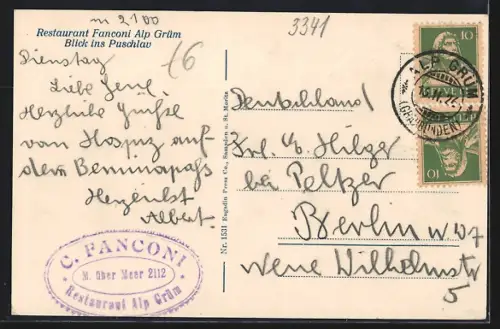 m 2100
3341
Restaurant Fanconi Alp Grüm
Blick ins Puschlav
6
Dienstag
Herzliche Grüße
vom Hospiz auf
dem Berninapaß
Herzlichst
Albert.
C. FANCONI
M. über Meer 2112
Restaurant Alp Grüm
Nr. 1531 Engadin Press Co., Samaden u. St. Moritz
10
HELVETIA
ALP GRÜM
(GRAUBÜNDEN)
10
Deutschland
Frl. E. Hilger
bei Peltzer
Berlin W W7
Neue Wilhelmstr
5